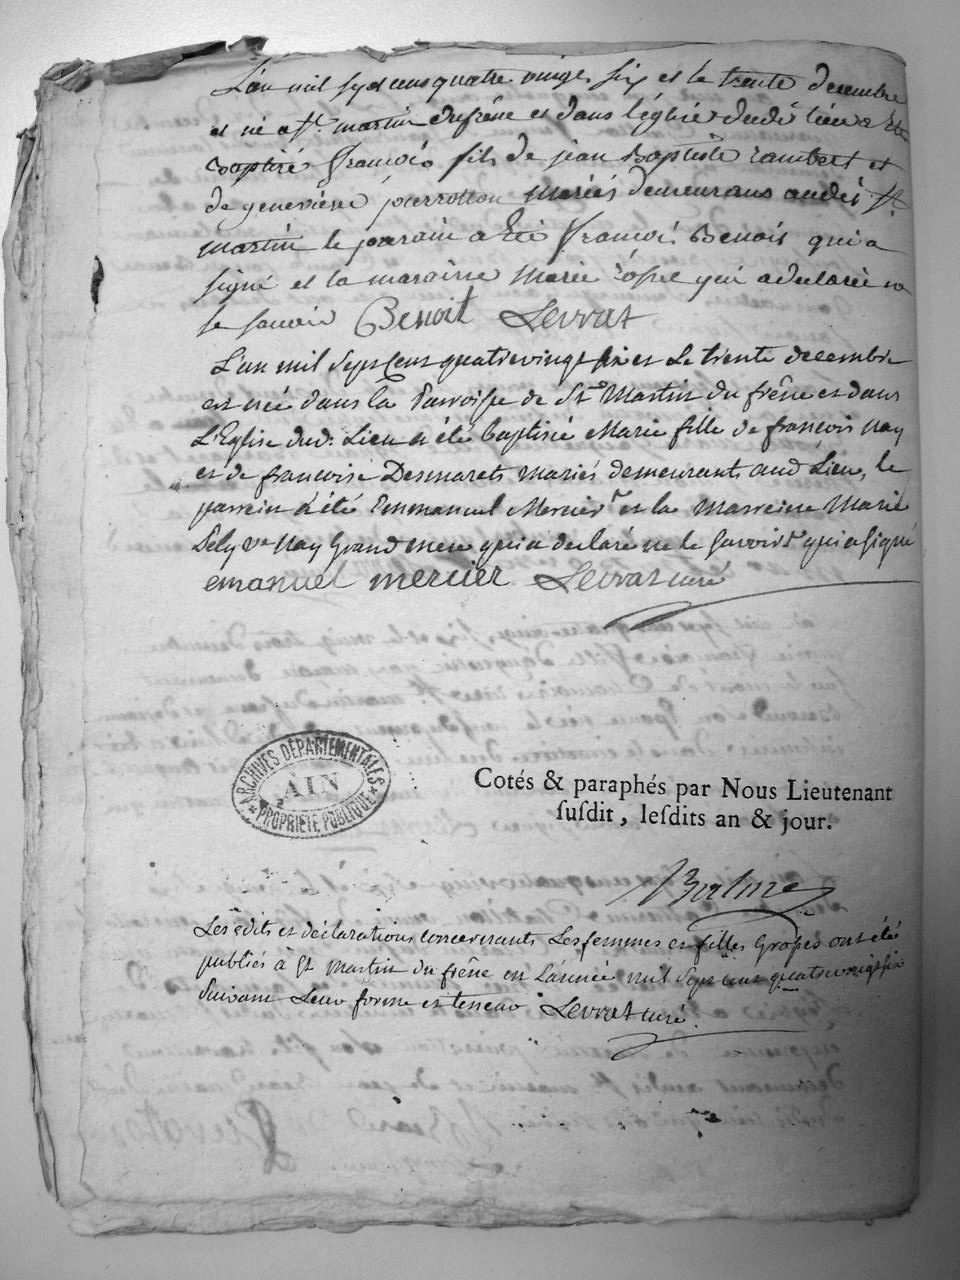 L'an mil sept cens quatre vingt six et le trente decembre
est né a St. martin dufrêne et dans l'églize dudt lieu a Eté
Baptisé françois fils de jean Baptiste rambert et
de genevieve pierrotton mariés demeurans audit St.
martin le parain a Eté françois Benoit qui a
signé et la maraine marie qui a declaree ne
le savoir Benoit Levrat
L'an mil Sept Cent quatre vingt six et Le trente decembre
est née dans la Parroisse de St. Martin du frêne et dans
L'Eglise dud. Lieu a été baptisée Marie fille de françois Nay
et de françoise Desmarets mariés demeurants aud Lieu, le
parrein a été Emmanuel Mercier et la Marreine Marie
ve Nay Grand mere qui a declaré ne le Savoir qui a signé
emanuel mercier Levrat curé
ARCHIVES DÉPARTEMENTALES
AIN
PROPRIÉTÉ PUBLIQUE
Cotés & paraphés par Nous Lieutenant
susdit, lesdits an & jour.
Balme
Les édits et déclarations concernants Les femmes et filles Groses ont été
publiés à St Martin du frêne en L'année mil Sept cent quatre vingt six
Suivant Leur forme et teneur Levrat curé